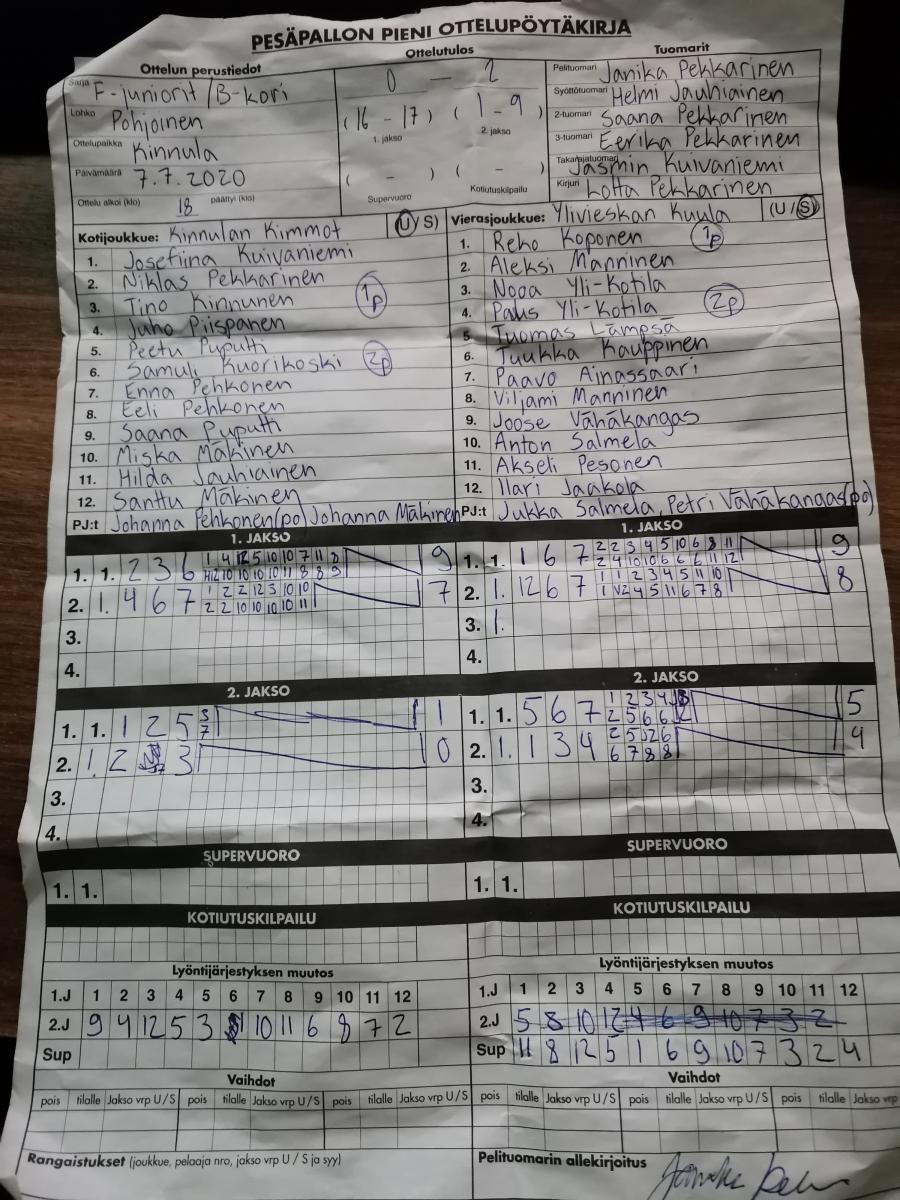 PESÄPALLON PIENI OTTELUPÖYTÄKIRJA
Ottelun perustiedot
Sarja F-juniorit / B-kori
Lohko Pohjoinen
Ottelupaikka Kinnula
Päivämäärä 7.7.2020
Ottelu alkoi (klo) 18 päättyi (klo)
Ottelutulos
0 — 2
(16 - 17) (1 - 9)
1. jakso 2. jakso
( - ) ( - )
Supervuoro Kotiutuskilpailu
Tuomarit
Pelituomari Janika Pekkarinen
Syöttötuomari Helmi Jauhiainen
2-tuomari Saana Pekkarinen
3-tuomari Eerika Pekkarinen
Takarajatuomari Jasmin Kuivaniemi
Kirjuri Lotta Pekkarinen
Kotijoukkue: Kinnulan Kimmot (U/S)
1. Josefiina Kuivaniemi
2. Niklas Pekkarinen
3. Tino Kinnunen 1p
4. Juho Piispanen
5. Peetu Puputti
6. Samuli Kuorikoski 2p
7. Enna Pehkonen
8. Eeli Pehkonen
9. Saana Puputti
10. Miska Mäkinen
11. Hilda Jauhiainen
12. Santtu Mäkinen
PJ:t Johanna Pehkonen(po) Johanna Mäkinen
Vierasjoukkue: Ylivieskan Kuula (U/S)
1. Reko Koponen 1p
2. Aleksi Manninen
3. Nooa Yli-Kotila
4. Paus Yli-Kotila 2p
5. Tuomas Lämpsä
6. Tuukka Kauppinen
7. Paavo Ainassaari
8. Viljami Manninen
9. Joose Vähäkangas
10. Anton Salmela
11. Akseli Pesonen
12. Ilari Jaakola
PJ:t Jukka Salmela, Petri Vähäkangas(po)
1. JAKSO
1. 1. 2 3 6 1 4 12 5 10 10 7 11 8 9
2. 1. 4 6 7 1 2 2 12 3 10 10 7
2 2 10 10 10 10 11
3.
4.
1. JAKSO
1. 1. 1 6 7 2 2 3 4 5 10 6 8 11 9
2 4 10 10 6 6 6 11 12
2. 1. 12 6 7 1 1 2 3 4 5 11 10 8
3. 1.
4.
2. JAKSO
1. 1. 1 2 5 3 1
7
2. 1. 2 3 0
3.
4.
2. JAKSO
1. 1. 5 6 7 1 2 3 4 5
2 5 6 6
2. 1. 1 3 4 2 5 12 6 4
6 7 8 8
3.
4.
SUPERVUORO
1. 1.
SUPERVUORO
1. 1.
KOTIUTUSKILPAILU
KOTIUTUSKILPAILU
Lyöntijärjestyksen muutos
1.J 1 2 3 4 5 6 7 8 9 10 11 12
2.J 9 4 12 5 3 1 10 11 6 8 7 2
Sup
Lyöntijärjestyksen muutos
1.J 1 2 3 4 5 6 7 8 9 10 11 12
2.J 5 8 10 12 4 6 9 10 7 3 2
Sup 11 8 12 5 1 6 9 10 7 3 2 4
Vaihdot
pois tilalle Jakso vrp U/S pois tilalle Jakso vrp U/S pois tilalle Jakso vrp U/S
Vaihdot
pois tilalle Jakso vrp U/S pois tilalle Jakso vrp U/S pois tilalle Jakso vrp
Rangaistukset (joukkue, pelaaja nro, jakso vrp U / S ja syy)
Pelituomarin allekirjoitus